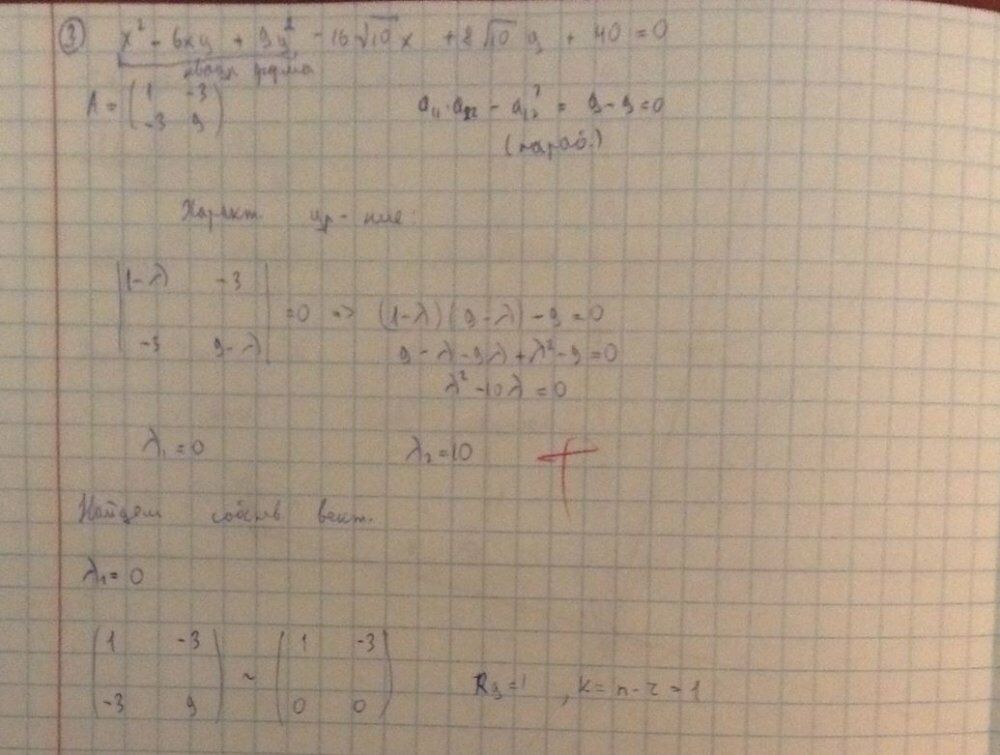 ③ x² - 6xy + 9y² - 16√10 x + 8√10 y + 40 = 0
квадр форма
A = (1 -3
-3 9)
a₁₁·a₂₂ - a₁₂² = 9-9=0
(параб.)
Характ. ур-ние:
|1-λ -3
-3 9-λ| =0 => (1-λ)(9-λ)-9=0
9-λ-9λ+λ²-9=0
λ²-10λ=0
λ₁=0 λ₂=10
Найдем собств вект.
λ₁=0
(1 -3
-3 9) ~ (1 -3
0 0)
Rg=1, k=n-r=1